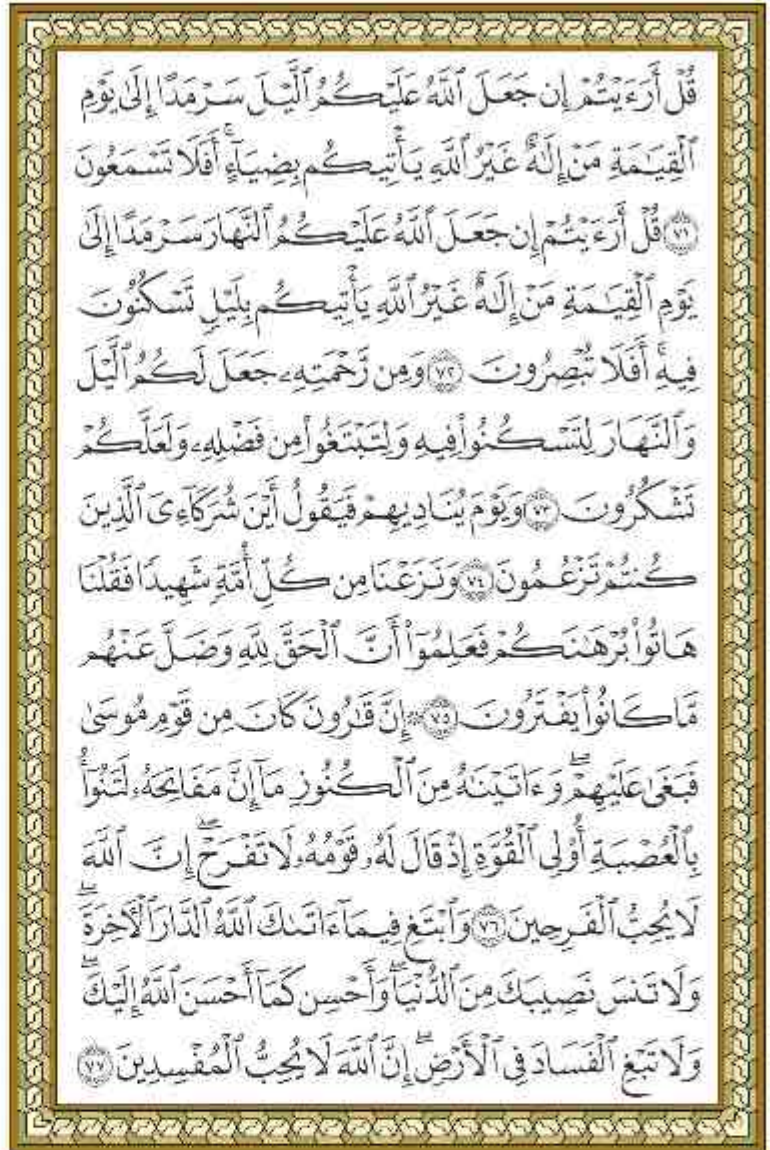 قُلْ أَرَءَيْتُمْ إِن جَعَلَ ٱللَّهُ عَلَيْكُمُ ٱلَّيْلَ سَرْمَدًا إِلَىٰ يَوْمِ
ٱلْقِيَـٰمَةِ مَنْ إِلَـٰهٌ غَيْرُ ٱللَّهِ يَأْتِيكُم بِضِيَآءٍ ۖ أَفَلَا تَسْمَعُونَ
﴿٧١﴾ قُلْ أَرَءَيْتُمْ إِن جَعَلَ ٱللَّهُ عَلَيْكُمُ ٱلنَّهَارَ سَرْمَدًا إِلَىٰ
يَوْمِ ٱلْقِيَـٰمَةِ مَنْ إِلَـٰهٌ غَيْرُ ٱللَّهِ يَأْتِيكُم بِلَيْلٍ تَسْكُنُونَ
فِيهِ ۖ أَفَلَا تُبْصِرُونَ ﴿٧٢﴾ وَمِن رَّحْمَتِهِۦ جَعَلَ لَكُمُ ٱلَّيْلَ
وَٱلنَّهَارَ لِتَسْكُنُوا۟ فِيهِ وَلِتَبْتَغُوا۟ مِن فَضْلِهِۦ وَلَعَلَّكُمْ
تَشْكُرُونَ ﴿٧٣﴾ وَيَوْمَ يُنَادِيهِمْ فَيَقُولُ أَيْنَ شُرَكَآءِىَ ٱلَّذِينَ
كُنتُمْ تَزْعُمُونَ ﴿٧٤﴾ وَنَزَعْنَا مِن كُلِّ أُمَّةٍ شَهِيدًا فَقُلْنَا
هَاتُوا۟ بُرْهَـٰنَكُمْ فَعَلِمُوٓا۟ أَنَّ ٱلْحَقَّ لِلَّهِ وَضَلَّ عَنْهُم
مَّا كَانُوا۟ يَفْتَرُونَ ﴿٧٥﴾ ۞ إِنَّ قَـٰرُونَ كَانَ مِن قَوْمِ مُوسَىٰ
فَبَغَىٰ عَلَيْهِمْ ۖ وَءَاتَيْنَـٰهُ مِنَ ٱلْكُنُوزِ مَآ إِنَّ مَفَاتِحَهُۥ لَتَنُوٓأُ
بِٱلْعُصْبَةِ أُو۟لِى ٱلْقُوَّةِ إِذْ قَالَ لَهُۥ قَوْمُهُۥ لَا تَفْرَحْ ۖ إِنَّ ٱللَّهَ
لَا يُحِبُّ ٱلْفَرِحِينَ ﴿٧٦﴾ وَٱبْتَغِ فِيمَآ ءَاتَىٰكَ ٱللَّهُ ٱلدَّارَ ٱلْـَٔاخِرَةَ ۖ
وَلَا تَنسَ نَصِيبَكَ مِنَ ٱلدُّنْيَا ۖ وَأَحْسِن كَمَآ أَحْسَنَ ٱللَّهُ إِلَيْكَ ۖ
وَلَا تَبْغِ ٱلْفَسَادَ فِى ٱلْأَرْضِ ۖ إِنَّ ٱللَّهَ لَا يُحِبُّ ٱلْمُفْسِدِينَ ﴿٧٧﴾